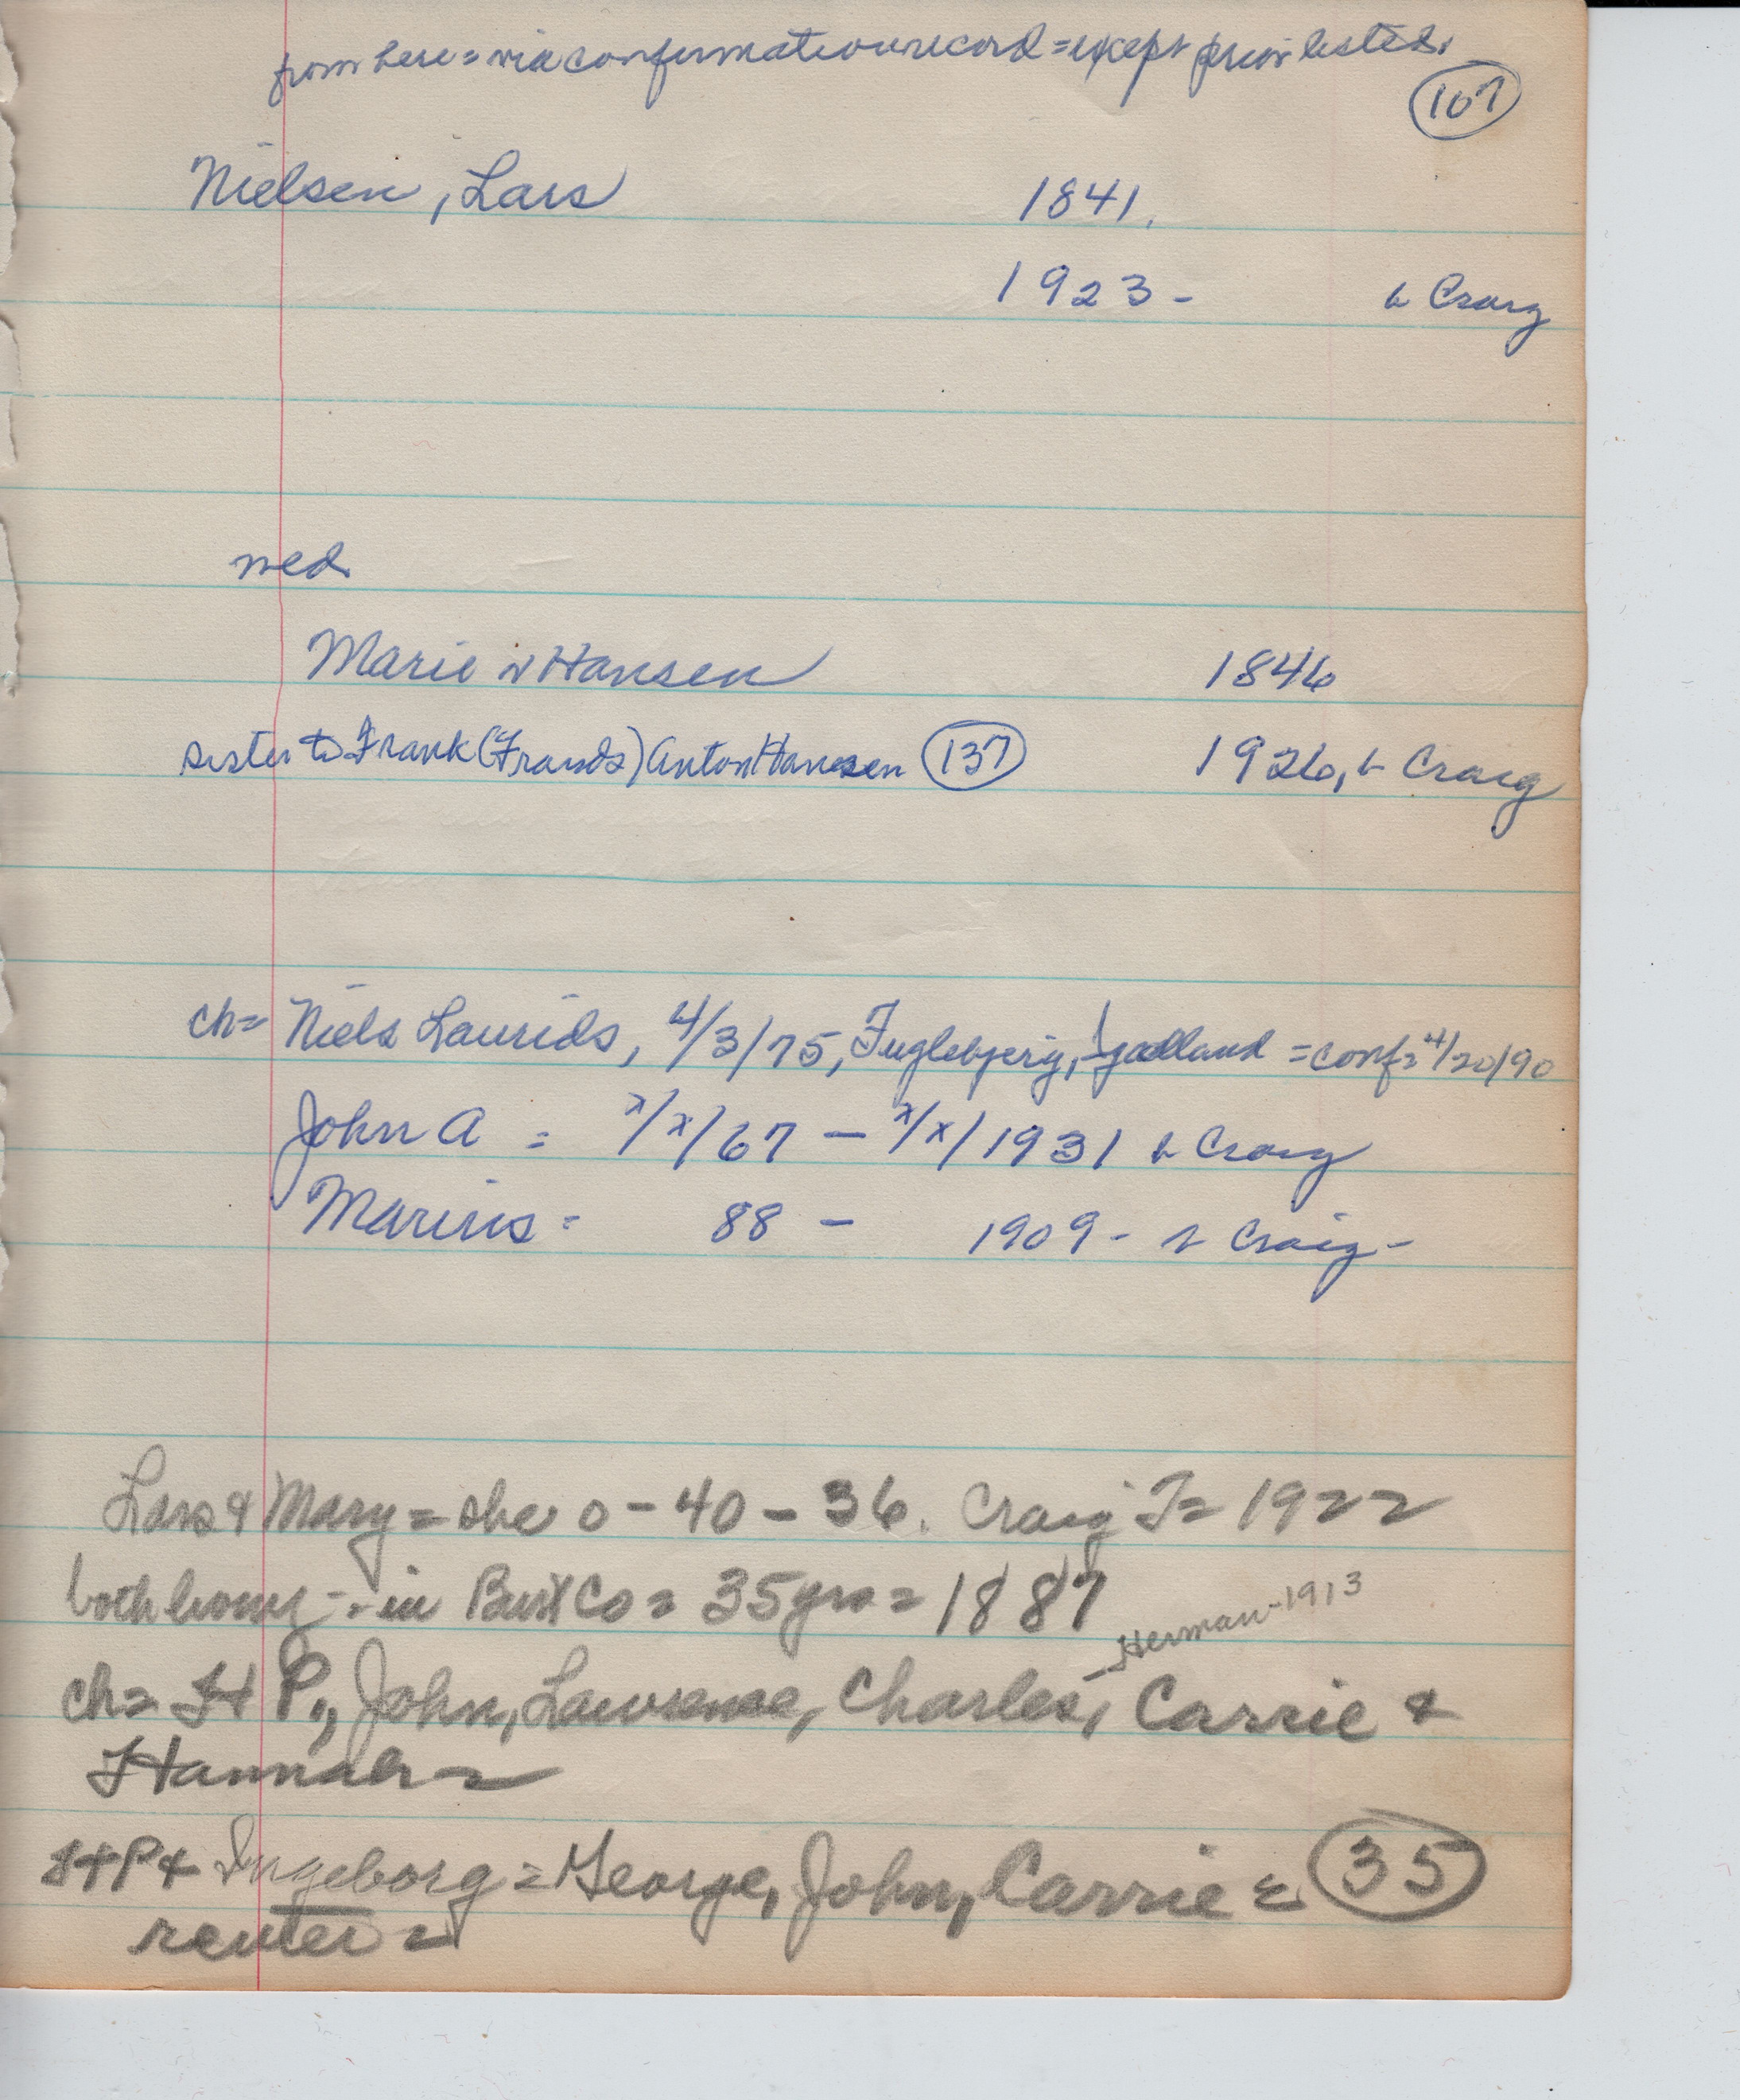 from here = via confirmation record = except prior listed.
107
Nielsen, Lars 1841.
1923 - b Craig
med
Marie v Hansen 1846
sister to Frank (Frands) Anton Hansen 137 1926, b Craig
ch = Niels Laurids, 4/3/75, Fuglebjerg, Sjaelland = conf = 4/20/90
John A = x/x/67 - x/x/1931 b Craig
Marius = 88 - 1909 - b Craig -
Lars & Mary = she 0 - 40 - 36. Craig T = 1922
both - in Burt Co = 35 yrs = 1887
Herman - 1913
ch = H P., John, Lawrence, Charles, Carrie &
Hannah =
H P & Ingeborg = George, John, Carrie = 35
renter =